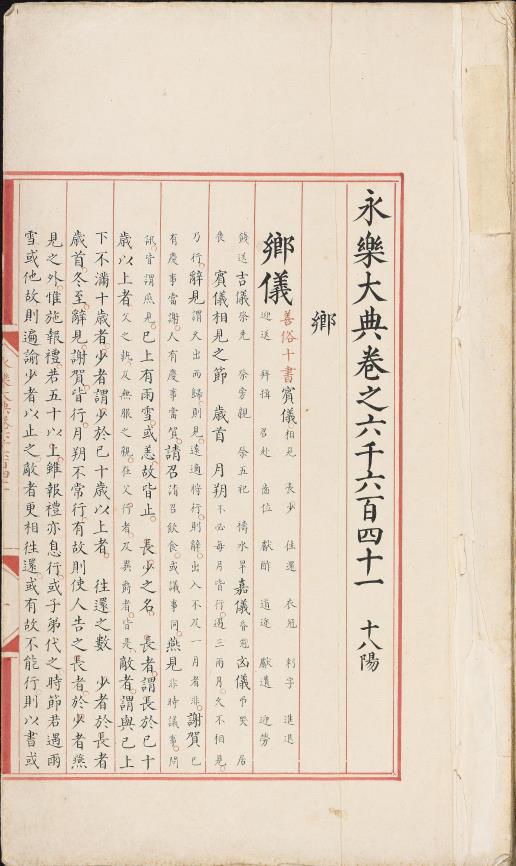 永樂大典卷之六千六百四十一 十八陽
鄉
鄉儀 善俗十書 賓儀 相見 長少 往還 衣冠 刺字 進退
迎送 拜揖 召赴 齒位 獻酢 道途 獻遺 迎勞
餞送 吉儀 祭先 祭旁親 祭五祀 禱水旱 嘉儀 昏冠 凶儀 弔哭 居
喪 賓儀相見之節 歲首 月朔 不必每月皆行遇三兩月久不相見
乃行 辭見 謂久出而歸則見遠適將行則辭出入不及一月者非 謝賀 已
有慶事當謝人有慶事當賀 請召 請召飲食或議事同 燕見 非時議事問
訊皆謂燕見 已上有雨雪或恙故皆止 長少之名 長者謂長於已十
歲以上者 父之執及無服之親在父行者及異爵者皆是 敵者謂與已上
下不滿十歲者少者謂少於已十歲以上者 往還之數 少者於長者
歲首冬至辭見謝賀皆行月朔不常行有故則使人告之長者於少者燕
見之外惟施報禮若五十以上雖報禮亦息行或子弟代之時節若遇雨
雪或他故則遍諭少者以止之敵者更相往還或有故不能行則以書或